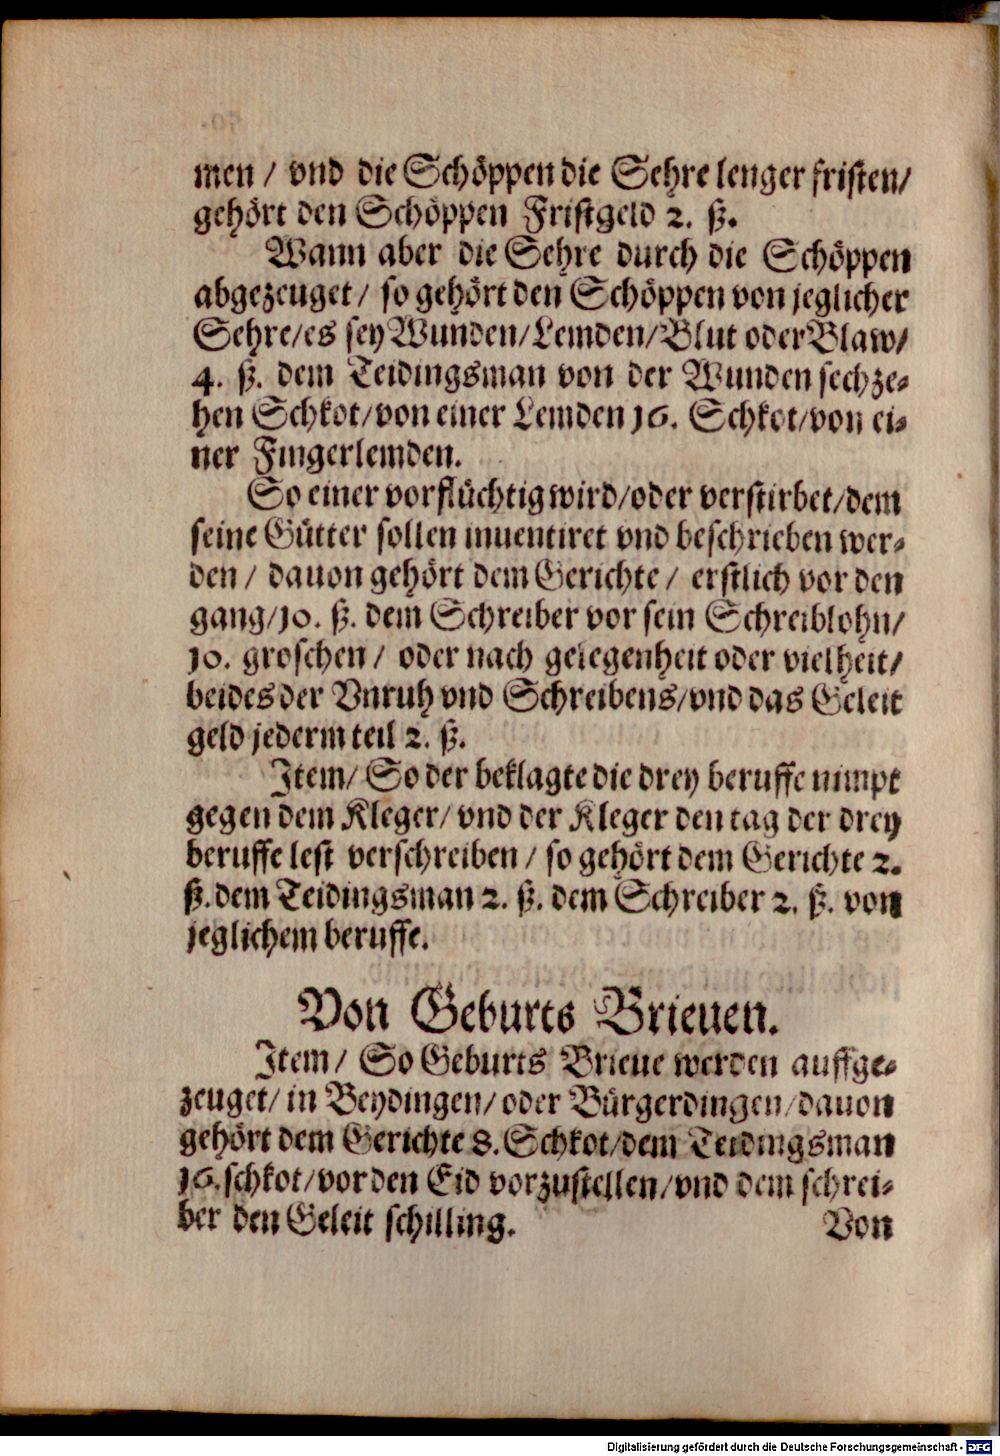 men / vnd die Schöppen die Sehre lenger fristen/
gehört den Schöppen Fristgeld 2. ß.
Wann aber die Sehre durch die Schöppen
abgezeuget / so gehört den Schöppen von jeglicher
Sehre/es sey Wunden/Lemden/Blut oder Blaw/
4. ß. dem Teidingsman von der Wunden sechze-
hen Schkot/von einer Lemden 16. Schkot/von ei-
ner Fingerlemden.
So einer vorflüchtig wird/oder verstirbet/dem
seine Gütter sollen inuentiret vnd beschrieben wer-
den / dauon gehört dem Gerichte / erstlich vor den
gang/10. ß. dem Schreiber vor sein Schreiblohn/
10. groschen / oder nach gelegenheit oder vielheit/
beides der Vnruh vnd Schreibens/vnd das Geleit
geld jederm teil 2. ß.
Item/ So der beklagte die drey beruffe nimpt
gegen dem Kleger/ vnd der Kleger den tag der drey
beruffe lest verschreiben / so gehört dem Gerichte 2.
ß. dem Teidingsman 2. ß. dem Schreiber 2. ß. von
jeglichem beruffe.
Von Geburts Brieuen.
Item/ So Geburts Brieue werden auffge-
zeuget/ in Beydingen/ oder Bürgerdingen/dauon
gehört dem Gerichte 8. Schkot/dem Teidingsman
16. schkot/vor den Eid vorzustellen/vnd dem schrei-
ber den Geleit schilling.
Von
Digitalisierung gefördert durch die Deutsche Forschungsgemeinschaft - DFG